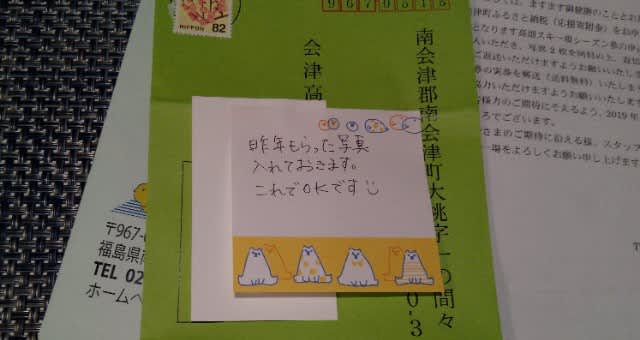 82
NIPPON
9670315
南会津郡南会津町大桃字一〇間々
0.3
会津高
昨年もらった写真
入れておきます。
これでOKです
〒967-0
福島県南
TEL 02
ホームペ
ますます御健勝のこととお
町ふるさと納税(応援寄附金)をお
となります高畑スキー場シーズン券の
いただき、写真2枚を同封の上、返信
ご返送いただけますようお願いいたしま
券の実券を郵送(送料無料)いたしま
協力いただけますようお願いいたしま
客様方のご期待にそえるよう、2019年
ろでございます。
さまのご期待に沿える様、スタッフ
場をよろしくお願い申し上げます